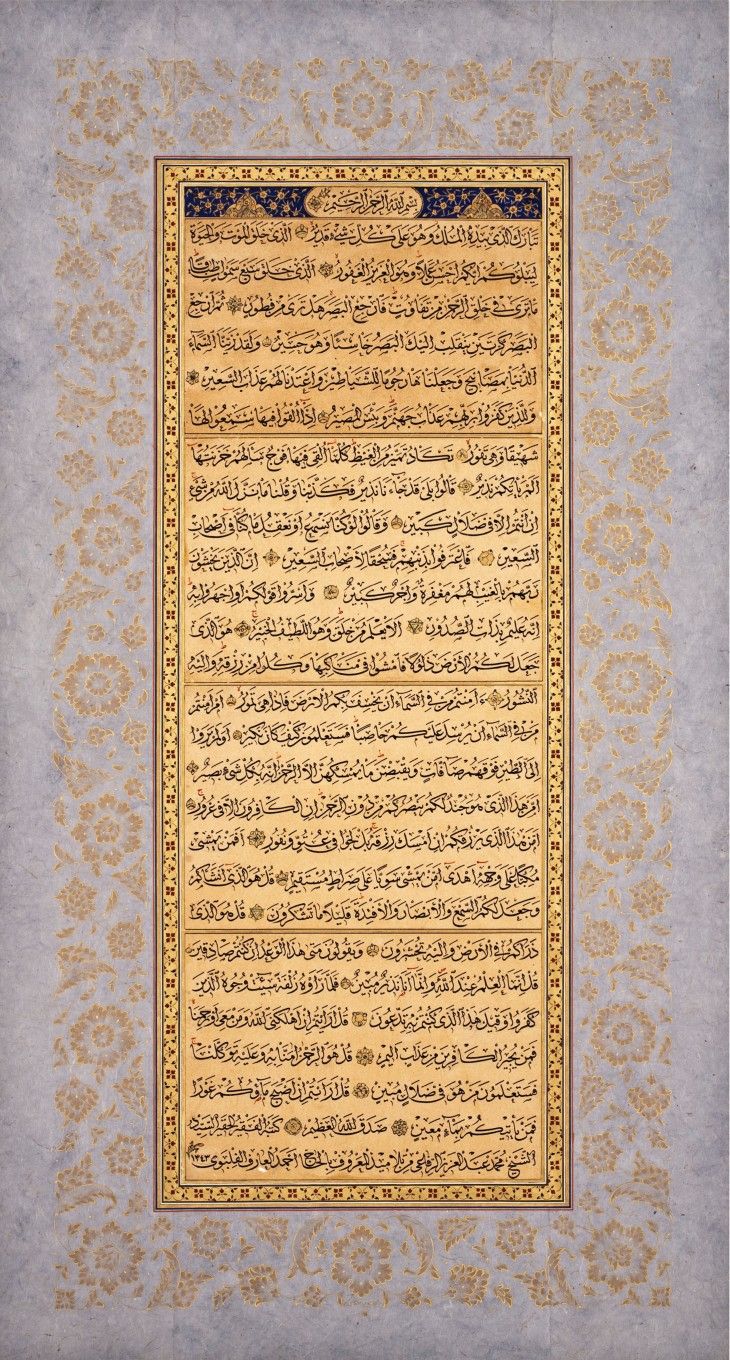 بسم الله الرحمن الرحيم
تبارك الذي بيده الملك وهو على كل شيء قدير الذي خلق الموت والحيوة
ليبلوكم ايكم احسن عملا وهو العزيز الغفور الذي خلق سبع سموات طباقا
ما ترى في خلق الرحمن من تفاوت فارجع البصر هل ترى من فطور ثم ارجع
البصر كرتين ينقلب اليك البصر خاسئا وهو حسير ولقد زينا السماء
الدنيا بمصابيح وجعلناها رجوما للشياطين واعتدنا لهم عذاب السعير
وللذين كفروا بربهم عذاب جهنم وبئس المصير اذا القوا فيها سمعوا لها
شهيقا وهي تفور تكاد تميز من الغيظ كلما القي فيها فوج سالهم خزنتها
الم ياتكم نذير قالوا بلى قد جاءنا نذير فكذبنا وقلنا ما نزل الله من شيء
ان انتم الا في ضلال كبير وقالوا لو كنا نسمع او نعقل ما كنا في اصحاب
السعير فاعترفوا بذنبهم فسحقا لاصحاب السعير ان الذين يخشون
ربهم بالغيب لهم مغفرة واجر كبير واسروا قولكم او اجهروا به
انه عليم بذات الصدور الا يعلم من خلق وهو اللطيف الخبير هو الذي
جعل لكم الارض ذلولا فامشوا في مناكبها وكلوا من رزقه واليه
النشور ءامنتم من في السماء ان يخسف بكم الارض فاذا هي تمور ام امنتم
من في السماء ان يرسل عليكم حاصبا فستعلمون كيف نذير ولقد كذب الذين من قبلهم فكيف كان نكير اولم يروا
الى الطير فوقهم صافات ويقبضن ما يمسكهن الا الرحمن انه بكل شيء بصير
امن هذا الذي هو جند لكم ينصركم من دون الرحمن ان الكافرون الا في غرور
امن هذا الذي يرزقكم ان امسك رزقه بل لجوا في عتو ونفور افمن يمشي
مكبا على وجهه اهدى امن يمشي سويا على صراط مستقيم قل هو الذي انشاكم
وجعل لكم السمع والابصار والافئدة قليلا ما تشكرون قل هو الذي
ذراكم في الارض واليه تحشرون ويقولون متى هذا الوعد ان كنتم صادقين
قل انما العلم عند الله وانما انا نذير مبين فلما راوه زلفة سيئت وجوه الذين
كفروا وقيل هذا الذي كنتم به تدعون قل ارايتم ان اهلكني الله ومن معي او رحمنا
فمن يجير الكافرين من عذاب اليم قل هو الرحمن امنا به وعليه توكلنا
فستعلمون من هو في ضلال مبين قل ارايتم ان اصبح ماؤكم غورا
فمن ياتيكم بماء معين صدق الله العظيم كتبه الفقير الحقير السيد
الشيخ محمد عبد العزيز الرفاعي من تلاميذ المعروف بالحاج احمد العارف الفلبوي ١٣٤٣